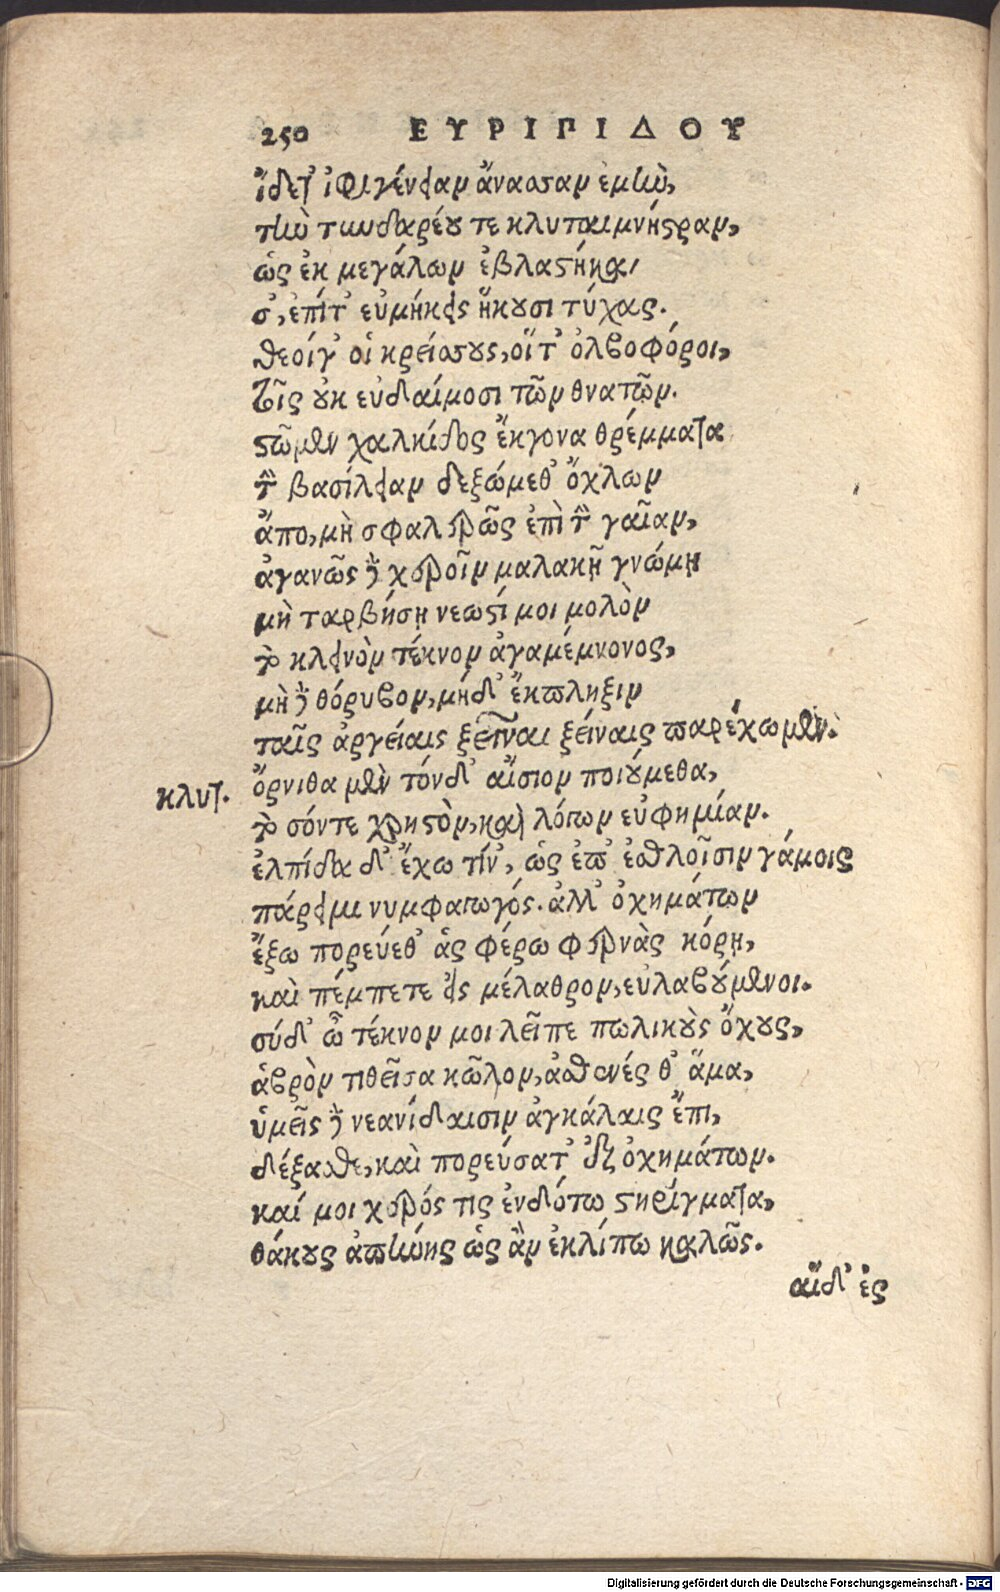 250 ΕΥΡΙΠΙΔΟΥ
ἴδετ' ἰφιγένειαν ἄνασσαν ἐμὴν,
τὴν τυνδαρέου τε κλυταιμνήστραν,
ὡς ἐκ μεγάλων ἐβλαστήκα,
σ', ἐπίτ' εὐμήκεις ἥκουσι τύχας.
θεοίγ' οἱ κρείσσους, οἵτ' ὀλβοφόροι,
τοῖς οὐκ εὐδαίμοσι τῶν θνατῶν.
στῶμεν χαλκίδος ἔκγονα θρέμματα
τὴν βασίλειαν δεξώμεθ' ὄχλων
ἄπο, μὴ σφαλερῶς ἐπὶ τὴν γαῖαν,
ἀγανῶς δὲ χεροῖν μαλακῇ γνώμῃ
μὴ ταρβήσῃ νεωστί μοι μολὸν
τὸ κλεινὸν τέκνον ἀγαμέμνονος,
μὴ δὲ θόρυβον, μήδ' ἔκπληξιν
ταῖς ἀργείαις ξεῖναι ξείναις παρέχωμεν.
κλυτ. ὄρνιθα μὲν τόνδ' αἴσιον ποιούμεθα,
τὸ σόντε χρηστὸν, καὶ λόγων εὐφημίαν.
ἐλπίδα δ' ἔχω τίν', ὡς ἐπ' ἐσθλοῖσιν γάμοις
πάρειμι νυμφαγωγός. ἀλλ' ὀχημάτων
ἔξω πορεύεθ' ἁς φέρω φερνὰς κόρῃ,
καὶ πέμπετε εἰς μέλαθρον, εὐλαβούμενοι.
σύδ' ὦ τέκνον μοι λεῖπε πωλικοὺς ὄχους,
ἁβρὸν τιθεῖσα κῶλον, ἀσθενές θ' ἅμα,
ὑμεῖς δὲ νεανίδαισιν ἀγκάλαις ἔπι,
δέξασθε, καὶ πορεύσατ' ἐξ ὀχημάτων.
καί μοι χερός τις ἐνδότω στηρίγματα,
θάκους ἀπήνης ὡς ἂν ἐκλίπω καλῶς.
αἵδ' ἐς
Digitalisierung gefördert durch die Deutsche Forschungsgemeinschaft - DFG